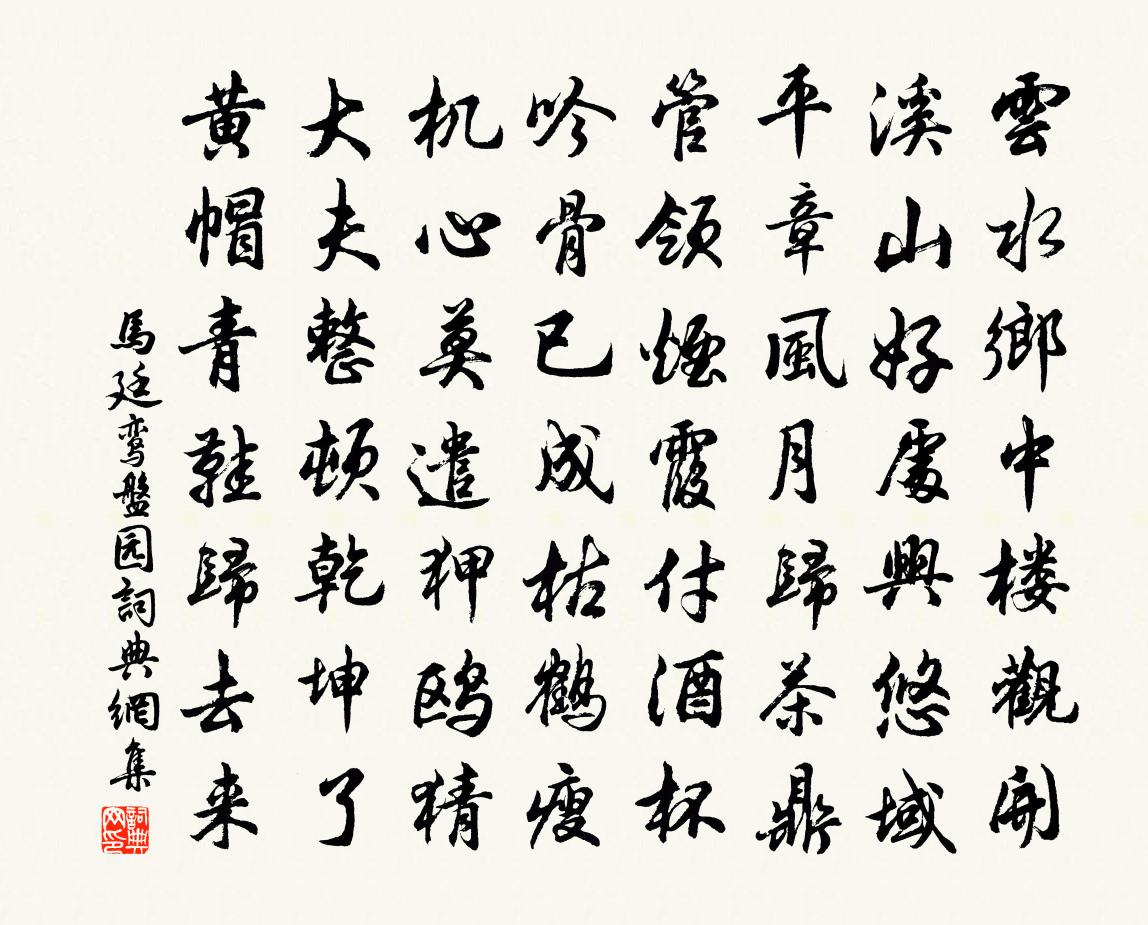 雲水鄉中楼觀開
溪山好處興悠哉
平章風月歸茶鼎
管領煙霞付酒杯
吟骨已成枯鶴瘦
机心莫遣狎鸥猜
大夫整頓乾坤了
黄帽青鞋歸去来
馬廷鸾盤园詞典網集
詞典网印